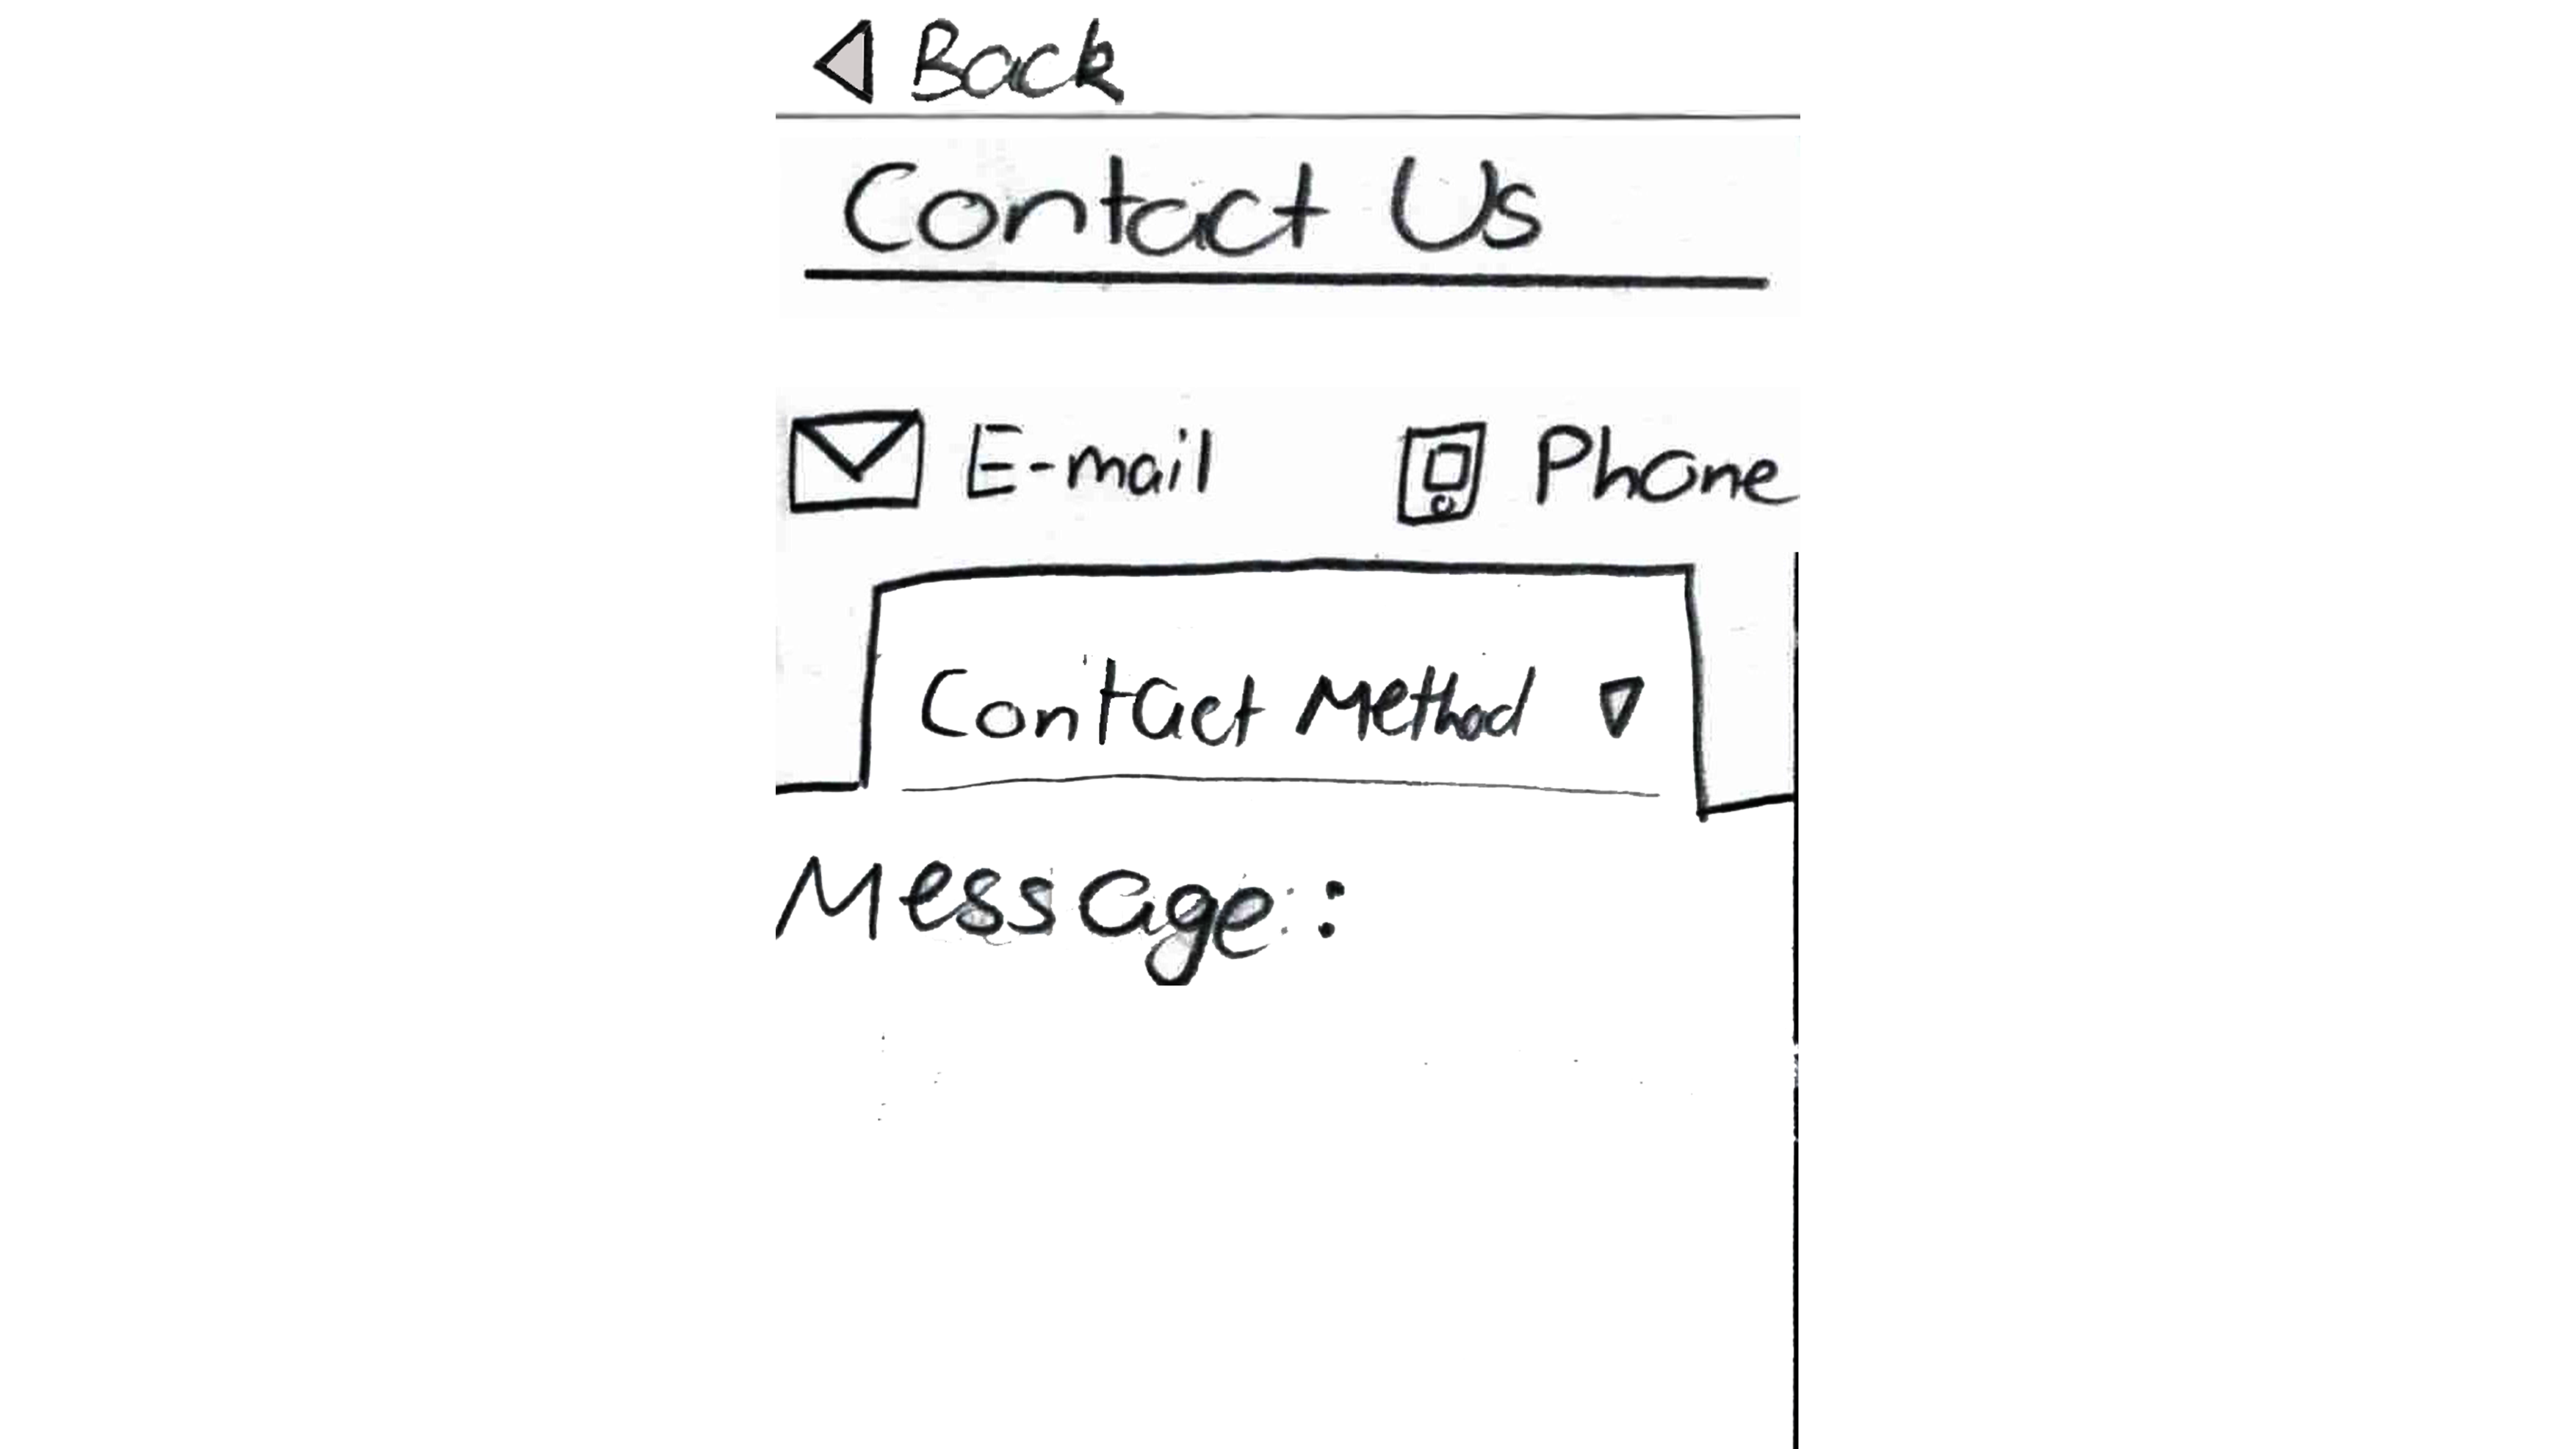 Back
Contact Us
E-mail Phone
Contact Method
Message: